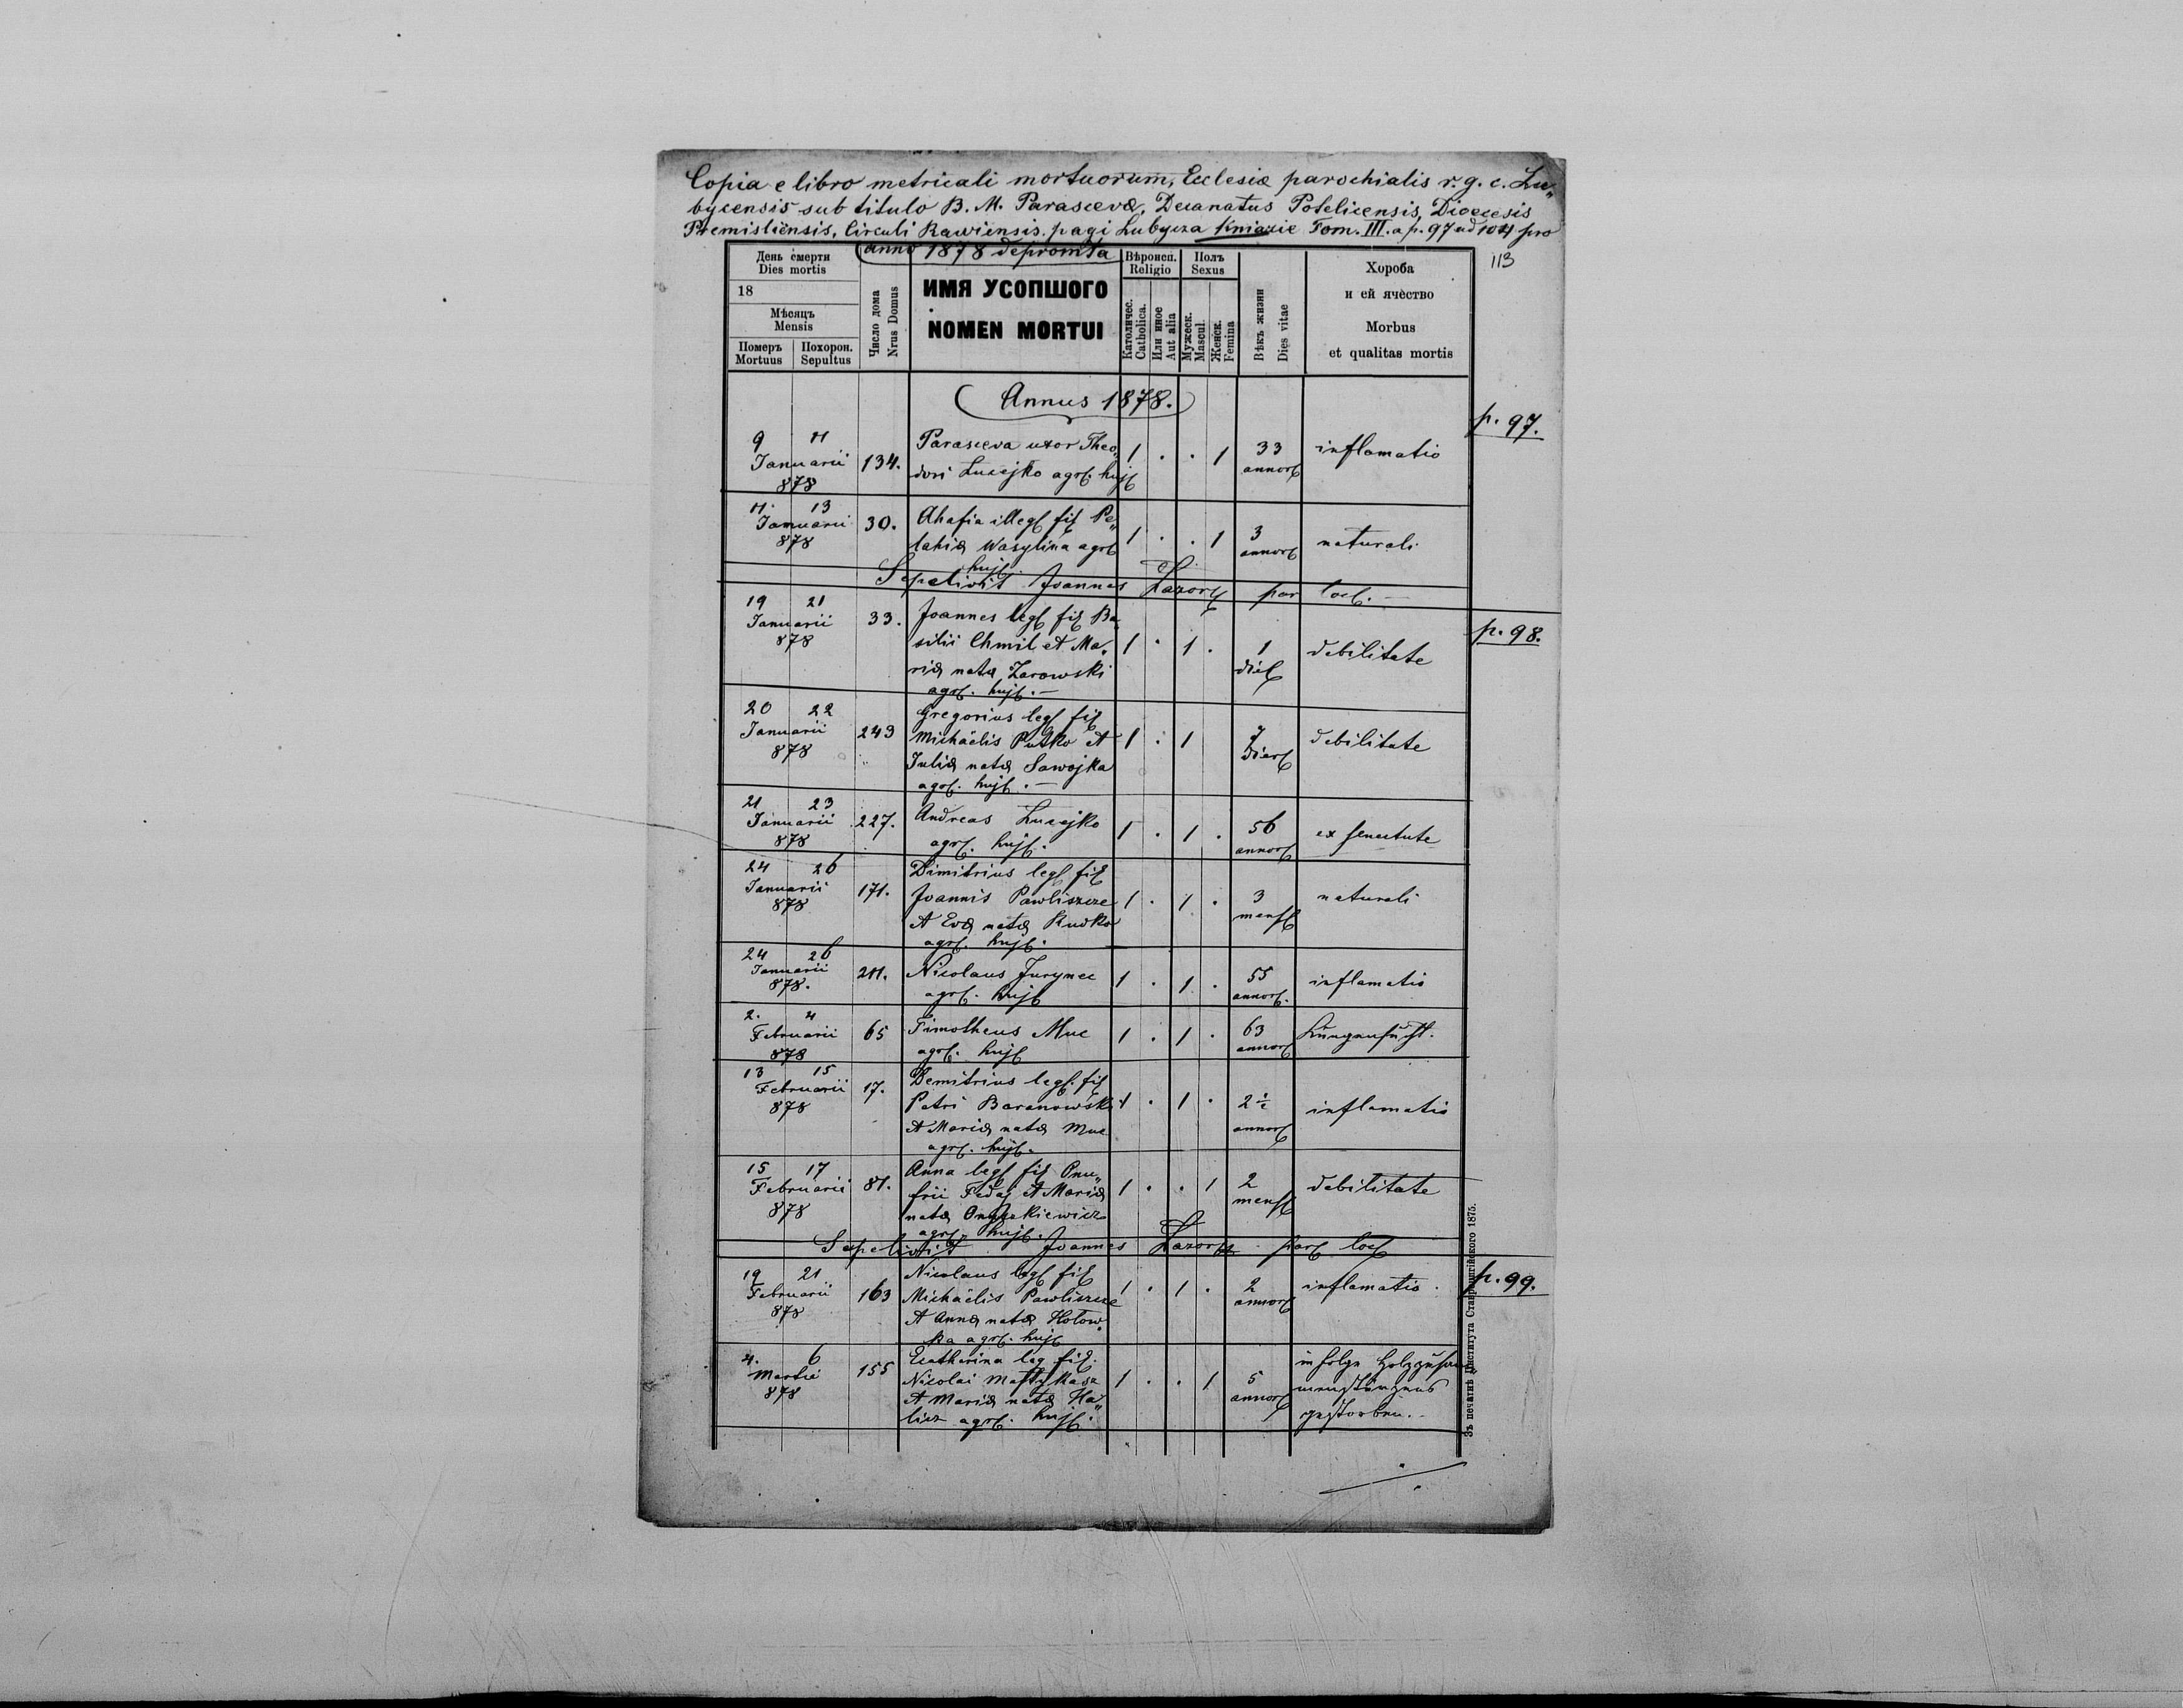 Copia e libro metricali mortuorum, Ecclesiæ parochialis r. g. c. Lu„
bycensis sub titulo B. M. Parascevæ, Decanatus Potelicensis, Dioecesis
Premisliensis, Circuli Rawiensis. pagi Lubycza Kniazie Tom. III. a p. 97 ad 104 pro
anno 1878 depromta
113
День смерти
Dies mortis
18
Мѣсяцъ
Mensis
Померъ
Mortuus
Похорон.
Sepultus
Число дома
Nrus Domus
ИМЯ УСОПШОГО
NOMEN MORTUI
Вѣроисп.
Religio
Католичес.
Catholica.
Или иное
Aut alia
Полъ
Sexus
Мужеск.
Mascul.
Женск.
Femina
Вѣкъ жизни
Dies vitae
Хороба
и ей ячество
Morbus
et qualitas mortis
Annus 1878.
p. 97.
9 11
Januarii 134.
878
Parasceva uxor Theo„
dori Lucejko agr. huj
1 . . 1 33 annor inflamatio
11. 13
Januarii 30.
878
Ahafia illeg fil Pe„
lahiæ Wasylina agr
huj.
1 . . 1 3 annor naturali
Sepelivit Joannes Lazor par loc. —
p. 98.
19 21
Januarii 33.
878
Joannes leg fil Ba
silii Chmil et Ma„
riæ natæ Zarowski
agr. huj. —
1 . 1 . 1 diei debilitate
20 22
Januarii 243
878
Gregorius leg fil
Michaëlis Putko et
Juliæ natæ Sawojka
agr. huj. —
1 . 1 7 dier debilitate
21 23
Januarii 227.
878
Andreas Lucejko
agr. huj.
1 . 1 . 56 annor ex senectute
24 26
Januarii 171.
878
Dimitrius leg fil
Joannis Pawliszcze
et Evæ natæ Rudko
agr. huj.
1 . 1 . 3 mens naturali
24 26
Januarii 211.
878.
Nicolaus Jurynec
agr. huj
1 . 1 . 55 annor. inflamatio
2. 4
Februarii 65
878
Timotheus Muc
agr. huj
1 . 1 . 63 annor Lungensucht.
13 15
Februarii 17.
878
Demitrius leg. fil
Petri Baranowski
et Mariæ natæ Muc
agr. huj.
1 . 1 . 2 ½ annor inflamatio
15 17
Februarii 81.
878
Anna leg fil Onu„
frii Fedaj et Mariæ
natæ
agr. huj.
1 . . 1 2 mens debilitate
Sepelivit Joannes Lazor par loc
p. 99.
19 21
Februarii 163
878
Nicolaus leg fil
Michaëlis Pawliszcze
et Annæ natæ Hołow„
ka agr. huj
1 . 1 . 2 annor inflamatio.
4. 6
Martii 155
878
Ecatharina leg fil.
Nicolai
et Mariæ natæ Ha„
licz agr. huj.
1 . . 1 5 annor
in Folge
gestorben. —
Зъ печатнѣ Института Ставропигійского 1875.